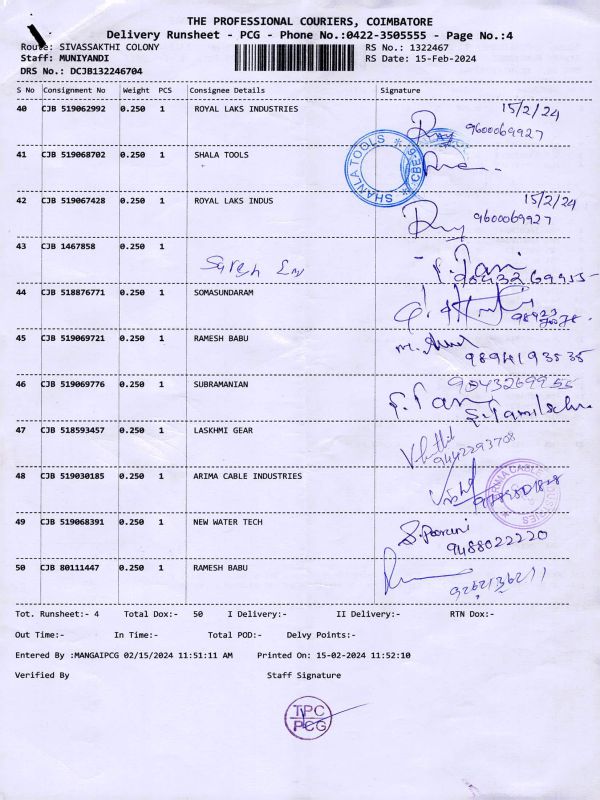 THE PROFESSIONAL COURIERS, COIMBATORE
Delivery Runsheet - PCG - Phone No.:0422-3505555 - Page No.:4
Route: SIVASSAKTHI COLONY RS No.: 1322467
Staff: MUNIYANDI RS Date: 15-Feb-2024
DRS No.: DCJB132246704
S No Consignment No Weight PCS Consignee Details Signature
40 CJB 519062992 0.250 1 ROYAL LAKS INDUSTRIES 15/2/24
9600069927
41 CJB 519068702 0.250 1 SHALA TOOLS
SHANLA TOOLS
42 CJB 519067428 0.250 1 ROYAL LAKS INDUS 15/2/24
9600069927
43 CJB 1467858 0.250 1
9843269955
44 CJB 518876771 0.250 1 SOMASUNDARAM
45 CJB 519069721 0.250 1 RAMESH BABU
9894193535
46 CJB 519069776 0.250 1 SUBRAMANIAN 9843269955
47 CJB 518593457 0.250 1 LASKHMI GEAR
9442293708
48 CJB 519030185 0.250 1 ARIMA CABLE INDUSTRIES
49 CJB 519068391 0.250 1 NEW WATER TECH
9488022220
50 CJB 80111447 0.250 1 RAMESH BABU
Tot. Runsheet:- 4 Total Dox:- 50 I Delivery:- II Delivery:- RTN Dox:-
Out Time:- In Time:- Total POD:- Delvy Points:-
Entered By :MANGAIPCG 02/15/2024 11:51:11 AM Printed On: 15-02-2024 11:52:10
Verified By Staff Signature
TPC
PCG